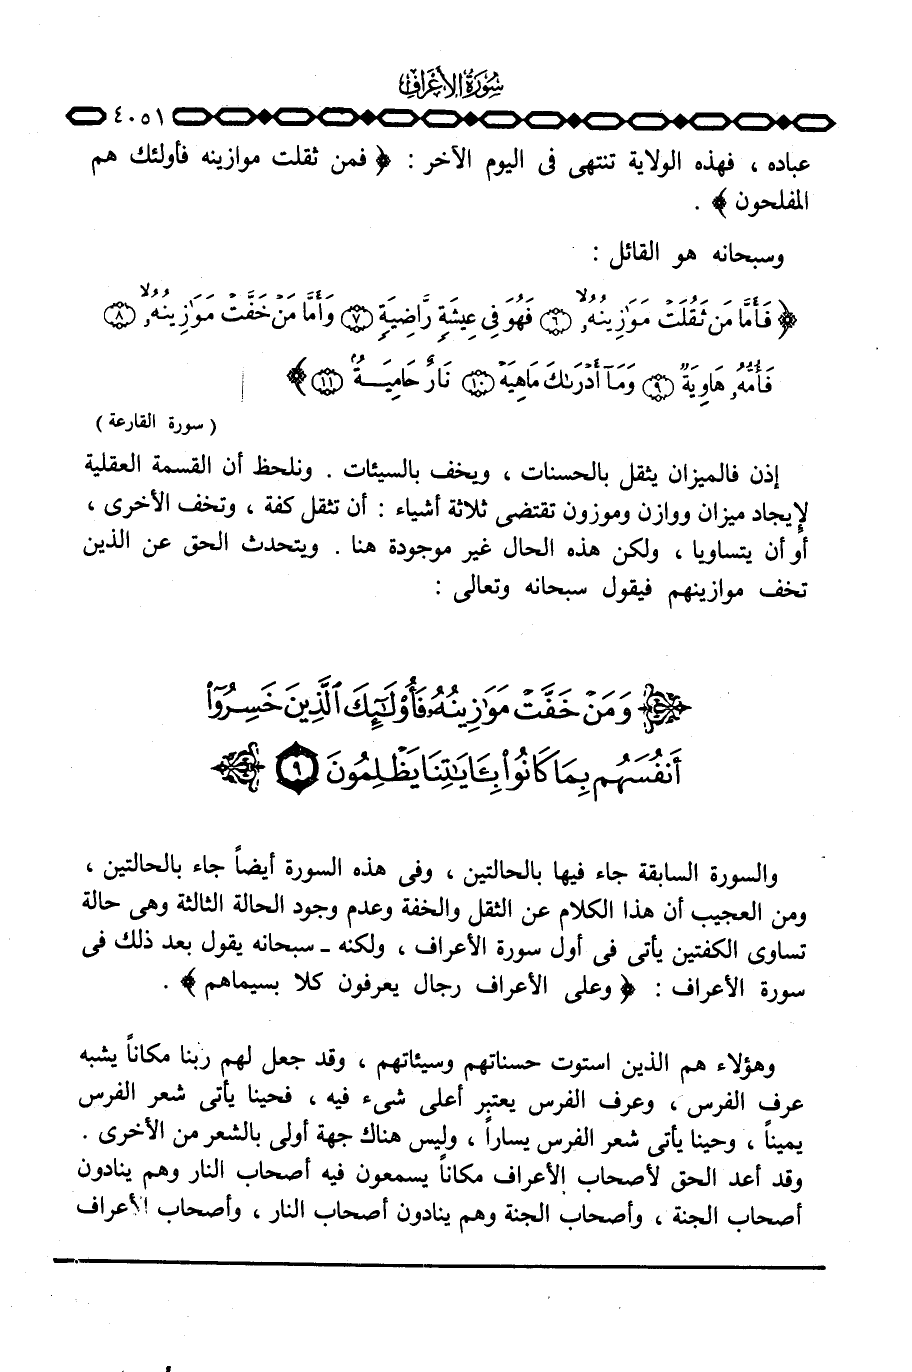 سورة الأعراف
٤٠٥١
عباده ، فهذه الولاية تنتهى فى اليوم الآخر : ﴿ فمن ثقلت موازينه فأولئك هم
المفلحون ﴾ .
وسبحانه هو القائل :
﴿ فَأَمَّا مَن ثَقُلَتْ مَوَٰزِينُهُۥ ٦ فَهُوَ فِى عِيشَةٍ رَّاضِيَةٍ ٧ وَأَمَّا مَنْ خَفَّتْ مَوَٰزِينُهُۥ ٨
فَأُمُّهُۥ هَاوِيَةٌ ٩ وَمَآ أَدْرَىٰكَ مَاهِيَهْ ١٠ نَارٌ حَامِيَةٌۢ ١١ ﴾
( سورة القارعة )
إذن فالميزان يثقل بالحسنات ، ويخف بالسيئات . ونلحظ أن القسمة العقلية
لإيجاد ميزان ووازن وموزون تقتضى ثلاثة أشياء : أن تثقل كفة ، وتخف الأخرى ،
أو أن يتساويا ، ولكن هذه الحال غير موجودة هنا . ويتحدث الحق عن الذين
تخف موازينهم فيقول سبحانه وتعالى :
وَمَنْ خَفَّتْ مَوَٰزِينُهُۥ فَأُو۟لَٰٓئِكَ ٱلَّذِينَ خَسِرُوٓا۟
أَنفُسَهُم بِمَا كَانُوا۟ بِـَٔايَٰتِنَا يَظْلِمُونَ ٩
والسورة السابقة جاء فيها بالحالتين ، وفى هذه السورة أيضاً جاء بالحالتين ،
ومن العجيب أن هذا الكلام عن الثقل والخفة وعدم وجود الحالة الثالثة وهى حالة
تساوى الكفتين يأتى فى أول سورة الأعراف ، ولكنه ـ سبحانه يقول بعد ذلك فى
سورة الأعراف : ﴿ وعلى الأعراف رجال يعرفون كلا بسيماهم ﴾ .
وهؤلاء هم الذين استوت حسناتهم وسيئاتهم ، وقد جعل لهم ربنا مكاناً يشبه
عرف الفرس ، وعرف الفرس يعتبر أعلى شىء فيه ، فحينا يأتى شعر الفرس
يميناً ، وحينا يأتى شعر الفرس يساراً ، وليس هناك جهة أولى بالشعر من الأخرى .
وقد أعد الحق لأصحاب الأعراف مكاناً يسمعون فيه أصحاب النار وهم ينادون
أصحاب الجنة ، وأصحاب الجنة وهم ينادون أصحاب النار ، وأصحاب الأعراف